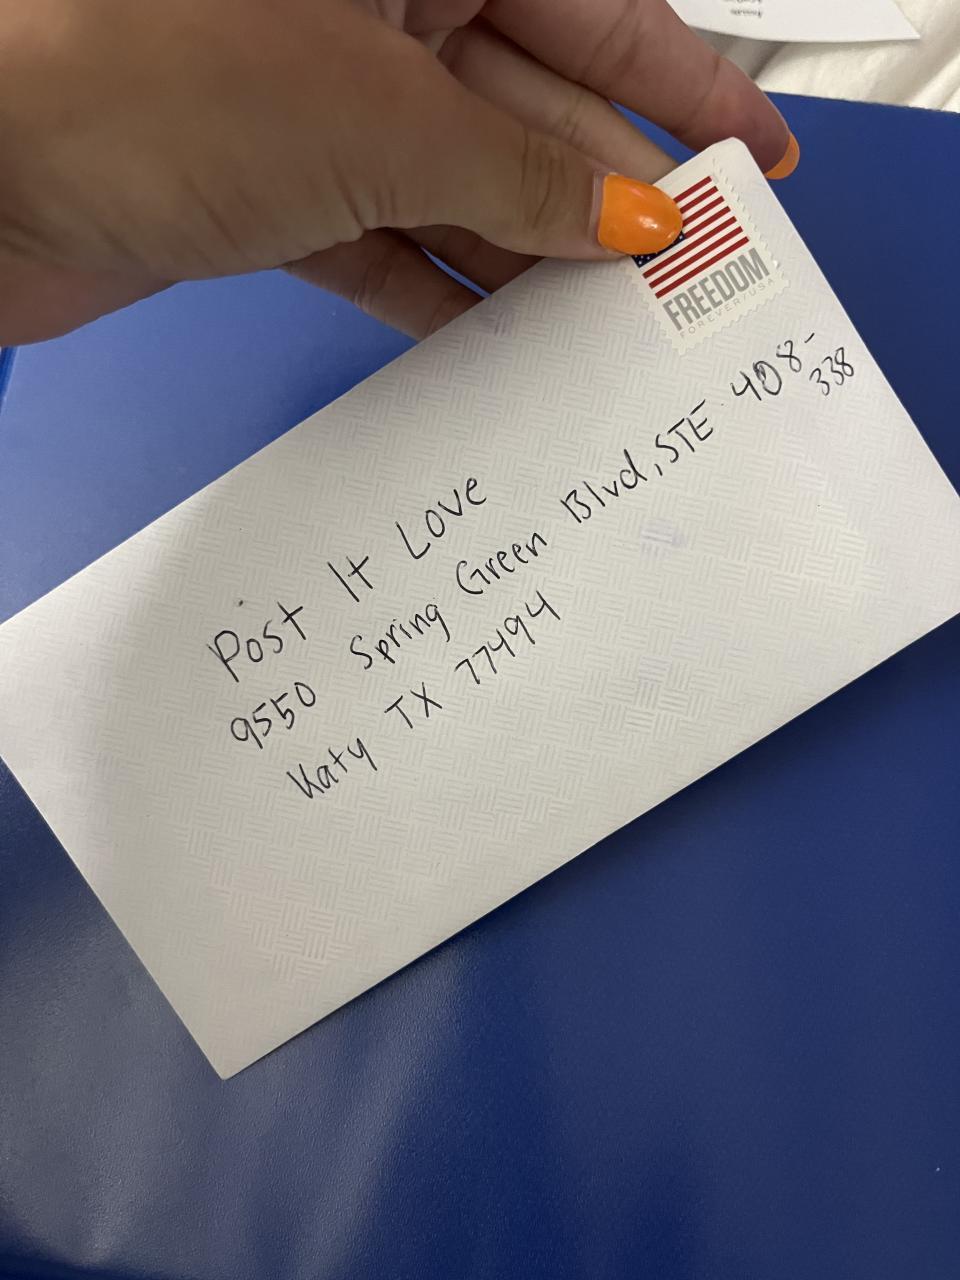 FREEDOM
FOREVER/USA
Post It Love
9550 Spring Green Blvd, STE 408-
338
Katy TX 77494